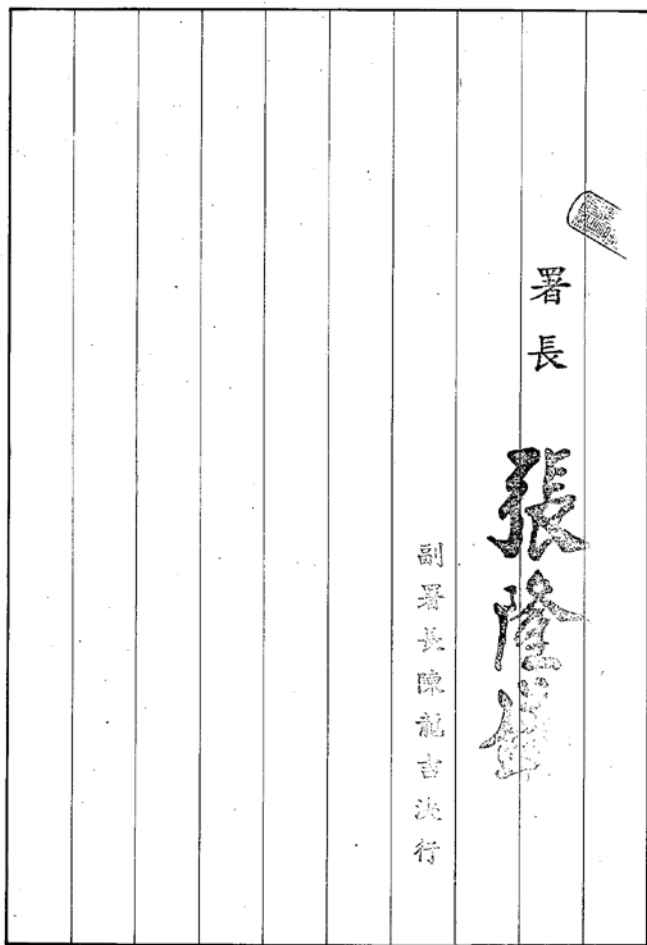 署長 張隆盛
副署長陳龍吉決行